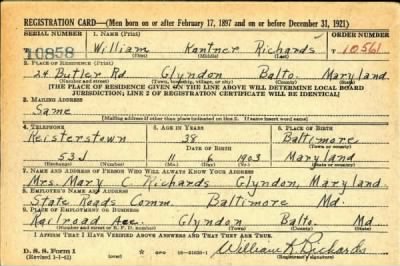 REGISTRATION CARD—(Men born on or after February 17, 1897 and on or before December 31, 1921)
SERIAL NUMBER 1. NAME (Print) ORDER NUMBER
10858 William Kantner Richards T 10561
(First) (Middle) (Last)
2. PLACE OF RESIDENCE (Print)
24 Butler Rd. Glyndon Balto. Maryland
(Number and street) (Town, township, village, or city) (County) (State)
[THE PLACE OF RESIDENCE GIVEN ON THE LINE ABOVE WILL DETERMINE LOCAL BOARD
JURISDICTION; LINE 2 OF REGISTRATION CERTIFICATE WILL BE IDENTICAL]
3. MAILING ADDRESS
Same
[Mailing address if other than place indicated on line 2. If same insert word same]
4. TELEPHONE 5. AGE IN YEARS 6. PLACE OF BIRTH
Reisterstown 38 Baltimore
DATE OF BIRTH (Town or county)
53J 11 6 1903 Maryland
(Exchange) (Number) (Mo.) (Day) (Yr.) (State or country)
7. NAME AND ADDRESS OF PERSON WHO WILL ALWAYS KNOW YOUR ADDRESS
Mrs. Mary Richards Glyndon, Maryland
8. EMPLOYER'S NAME AND ADDRESS
State Roads Comm. Baltimore Md
9. PLACE OF EMPLOYMENT OR BUSINESS
Railroad Ave. Glyndon Balto. Md
(Number and street or R. F. D. number) (Town) (County) (State)
I AFFIRM THAT I HAVE VERIFIED ABOVE ANSWERS AND THAT THEY ARE TRUE.
D. S. S. Form 1
(Revised 1-1-42) (over) William K Richards